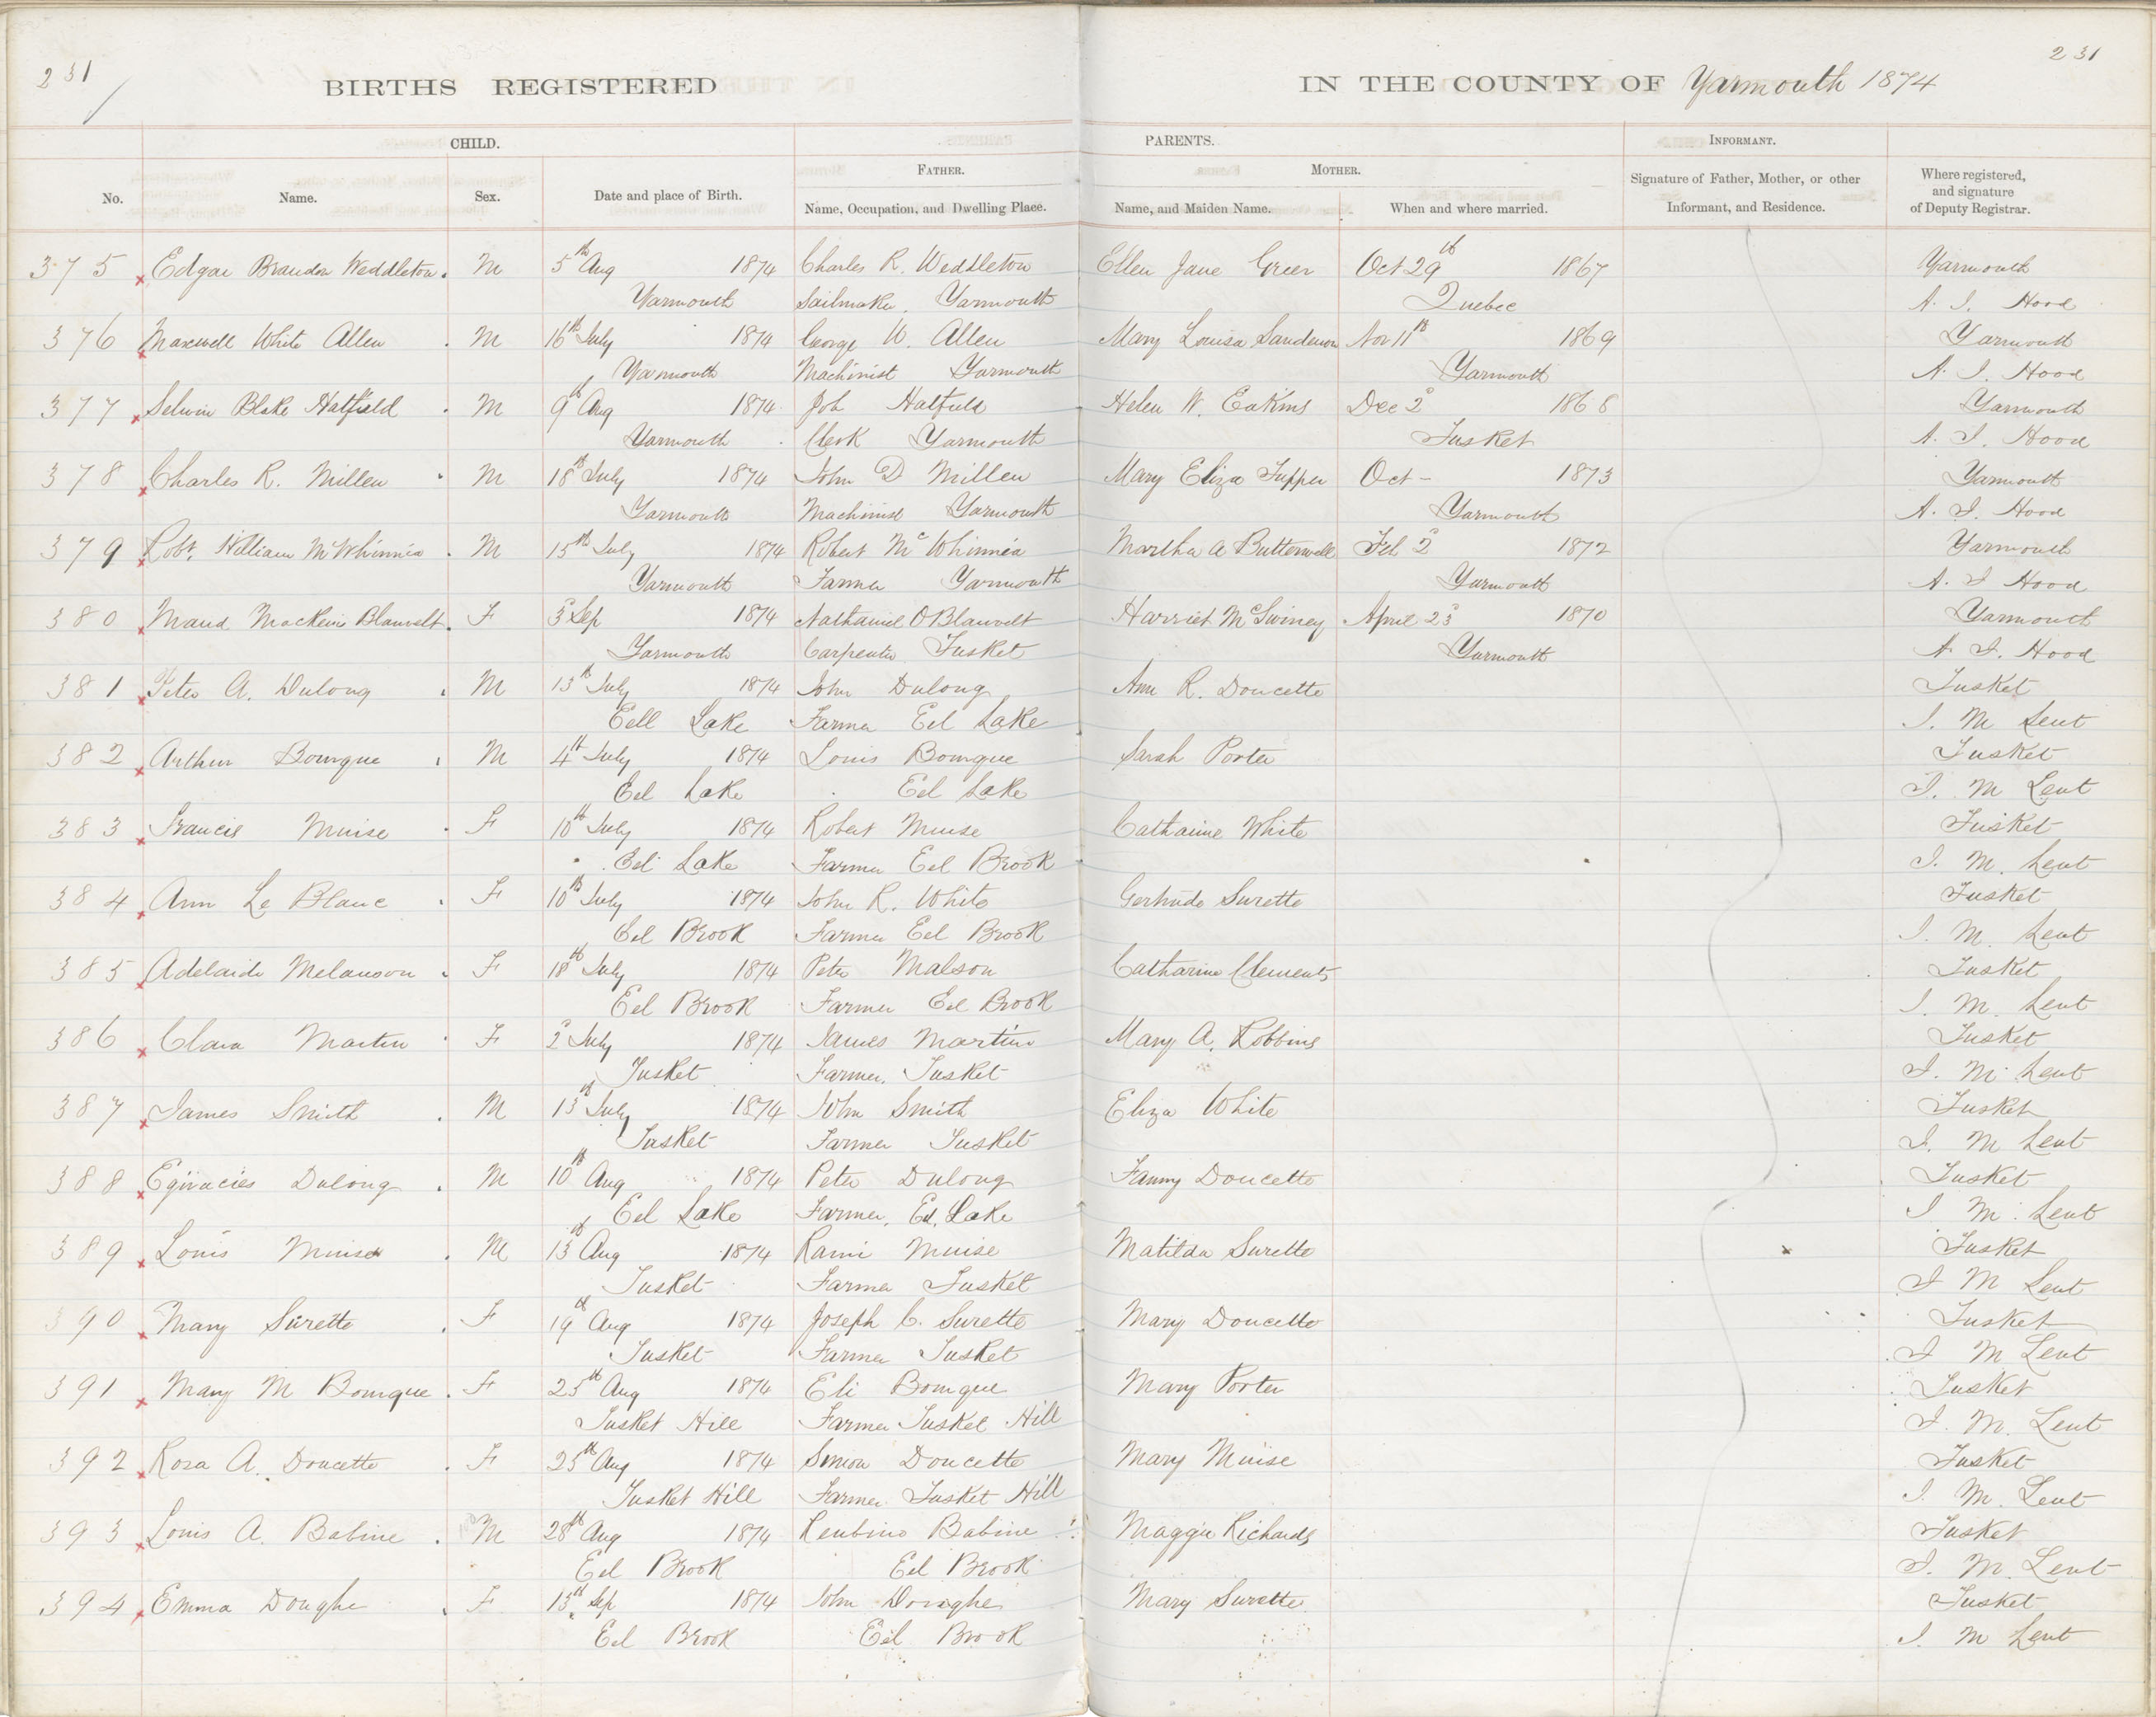 231
231
BIRTHS REGISTERED IN THE COUNTY OF Yarmouth 1874
CHILD. PARENTS. INFORMANT.
FATHER. MOTHER.
No. Name. Sex. Date and place of Birth. Name, Occupation, and Dwelling Place. Name, and Maiden Name. When and where married. Signature of Father, Mother, or other Informant, and Residence. Where registered, and signature of Deputy Registrar.
375 Edgar Brandon Weddleton M 5th Aug 1874 Charles R. Weddleton Ellen Jane Green Oct 29th 1867 Yarmouth
Yarmouth Sailmaker Yarmouth Quebec A. J. Hood
376 Maxwell White Allen M 16th July 1874 George W. Allen Mary Louisa Sanderson Nov 11th 1869 Yarmouth
Yarmouth Machinist Yarmouth Yarmouth A. J. Hood
377 Selwin Blake Hatfield M 9th Aug 1874 Job Hatfield Helen W. Eakins Dec 2d 1868 Yarmouth
Yarmouth Clerk Yarmouth Tusket A. J. Hood
378 Charles R. Millen M 18th July 1874 John D Millen Mary Eliza Tupper Oct - 1873 Yarmouth
Yarmouth Machinist Yarmouth Yarmouth A. J. Hood
379 Robt. William McWhinnia M 15th July 1874 Robert McWhinnia Martha A Butterwell Feb 2d 1872 Yarmouth
Yarmouth Farmer Yarmouth Yarmouth A. J Hood
380 Maud Blauvelt F 3d Sep 1874 Nathaniel O Blauvelt Harriet McSwiney April 23d 1870 Yarmouth
Yarmouth Carpenter Tusket Yarmouth A J. Hood
381 Peter A. Dulong M 13th July 1874 John Dulong Ann R. Doucette Tusket
Eell Lake Farmer Eel Lake J. M Lent
382 Arthur Bourque M 4th July 1874 Louis Bourque Sarah Porter Tusket
Eel Lake Eel Lake J. M Lent
383 Francis Muise F 10th July 1874 Robert Muise Catharine White Tusket
Eel Lake Farmer Eel Brook J. M. Lent
384 Ann Le Blanc F 10th July 1874 John R. White Gertrude Surette Tusket
Eel Brook Farmer Eel Brook J. M. Lent
385 Adelaide Melanson F 18th July 1874 Peter Malson Catharine Clements Tusket
Eel Brook Farmer Eel Brook J. M. Lent
386 Clara Martin F 2d July 1874 James Martin Mary A. Robbins Tusket
Tusket Farmer, Tusket J. M. Lent
387 James Smith M 13th July 1874 John Smith Eliza White Tusket
Tusket Farmer Tusket J. M Lent
388 Dulong M 10th Aug 1874 Peter Dulong Fanny Doucette Tusket
Eel Lake Farmer, Eel Lake J M. Lent
389 Louis Muise M 13th Aug 1874 Rami Muise Matilda Surette Tusket
Tusket Farmer Tusket J M Lent
390 Mary Surette F 14th Aug 1874 Joseph C. Surette Mary Doucette Tusket
Tusket Farmer Tusket J M Lent
391 Mary M Bourque F 25th Aug 1874 Eli Bourque Mary Porter Tusket
Tusket Hill Farmer Tusket Hill J. M. Lent
392 Rosa A. Doucette F 25th Aug 1874 Simon Doucette Mary Muise Tusket
Tusket Hill Farmer Tusket Hill J. M. Lent
393 Louis A. Babine M 28th Aug 1874 Reubino Babine Maggie Richards Tusket
Eel Brook Eel Brook J. M. Lent
394 Emma Doughe F 15th Sep 1874 John Doughe Mary Surette Tusket
Eel Brook Eel Brook J. M Lent